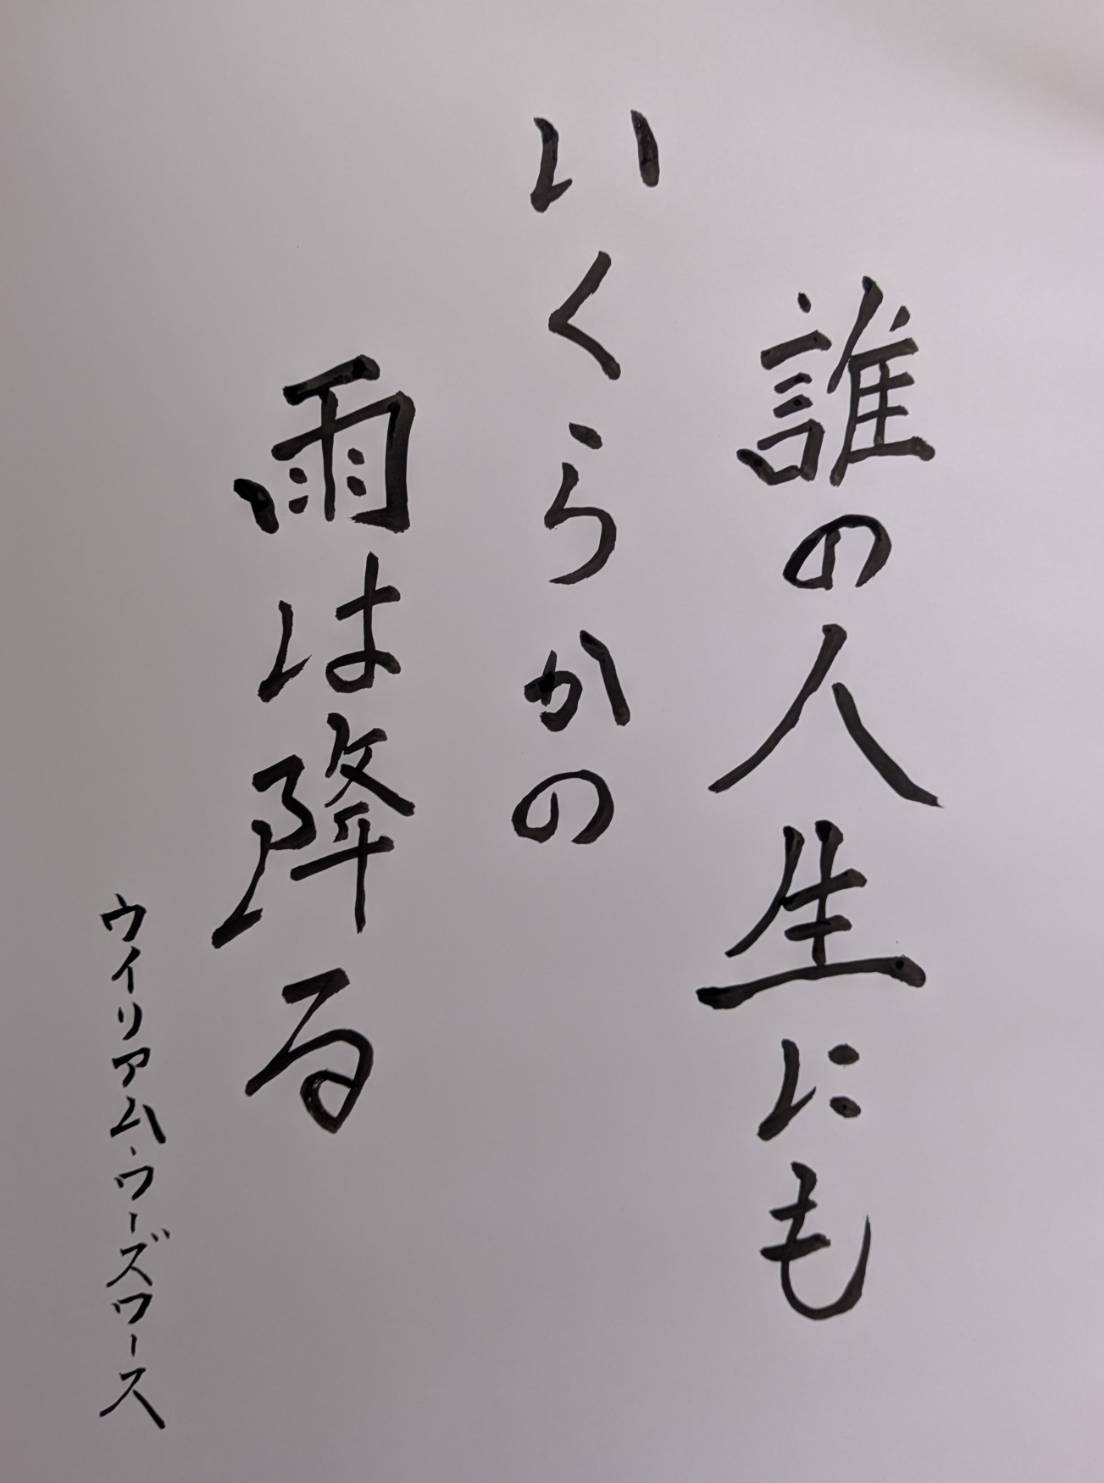 誰の人生にも
いくらかの
雨は降る
ウイリアム・ワーズワース